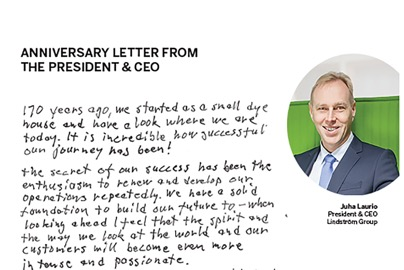 ANNIVERSARY LETTER FROM
THE PRESIDENT & CEO
170 years ago, we started as a small dye
house and have a look where we are
today. It is incredible how successful
our journey has been!
The secret of our success has been the
enthusiasm to renew and develop our
operations repeatedly. We have a solid
foundation to build our future to, – when
looking ahead I feel that the spirit and
the way we look at the world and our
customers will become even more
intense and passionate.
Juha Laurio
President & CEO
Lindström Group